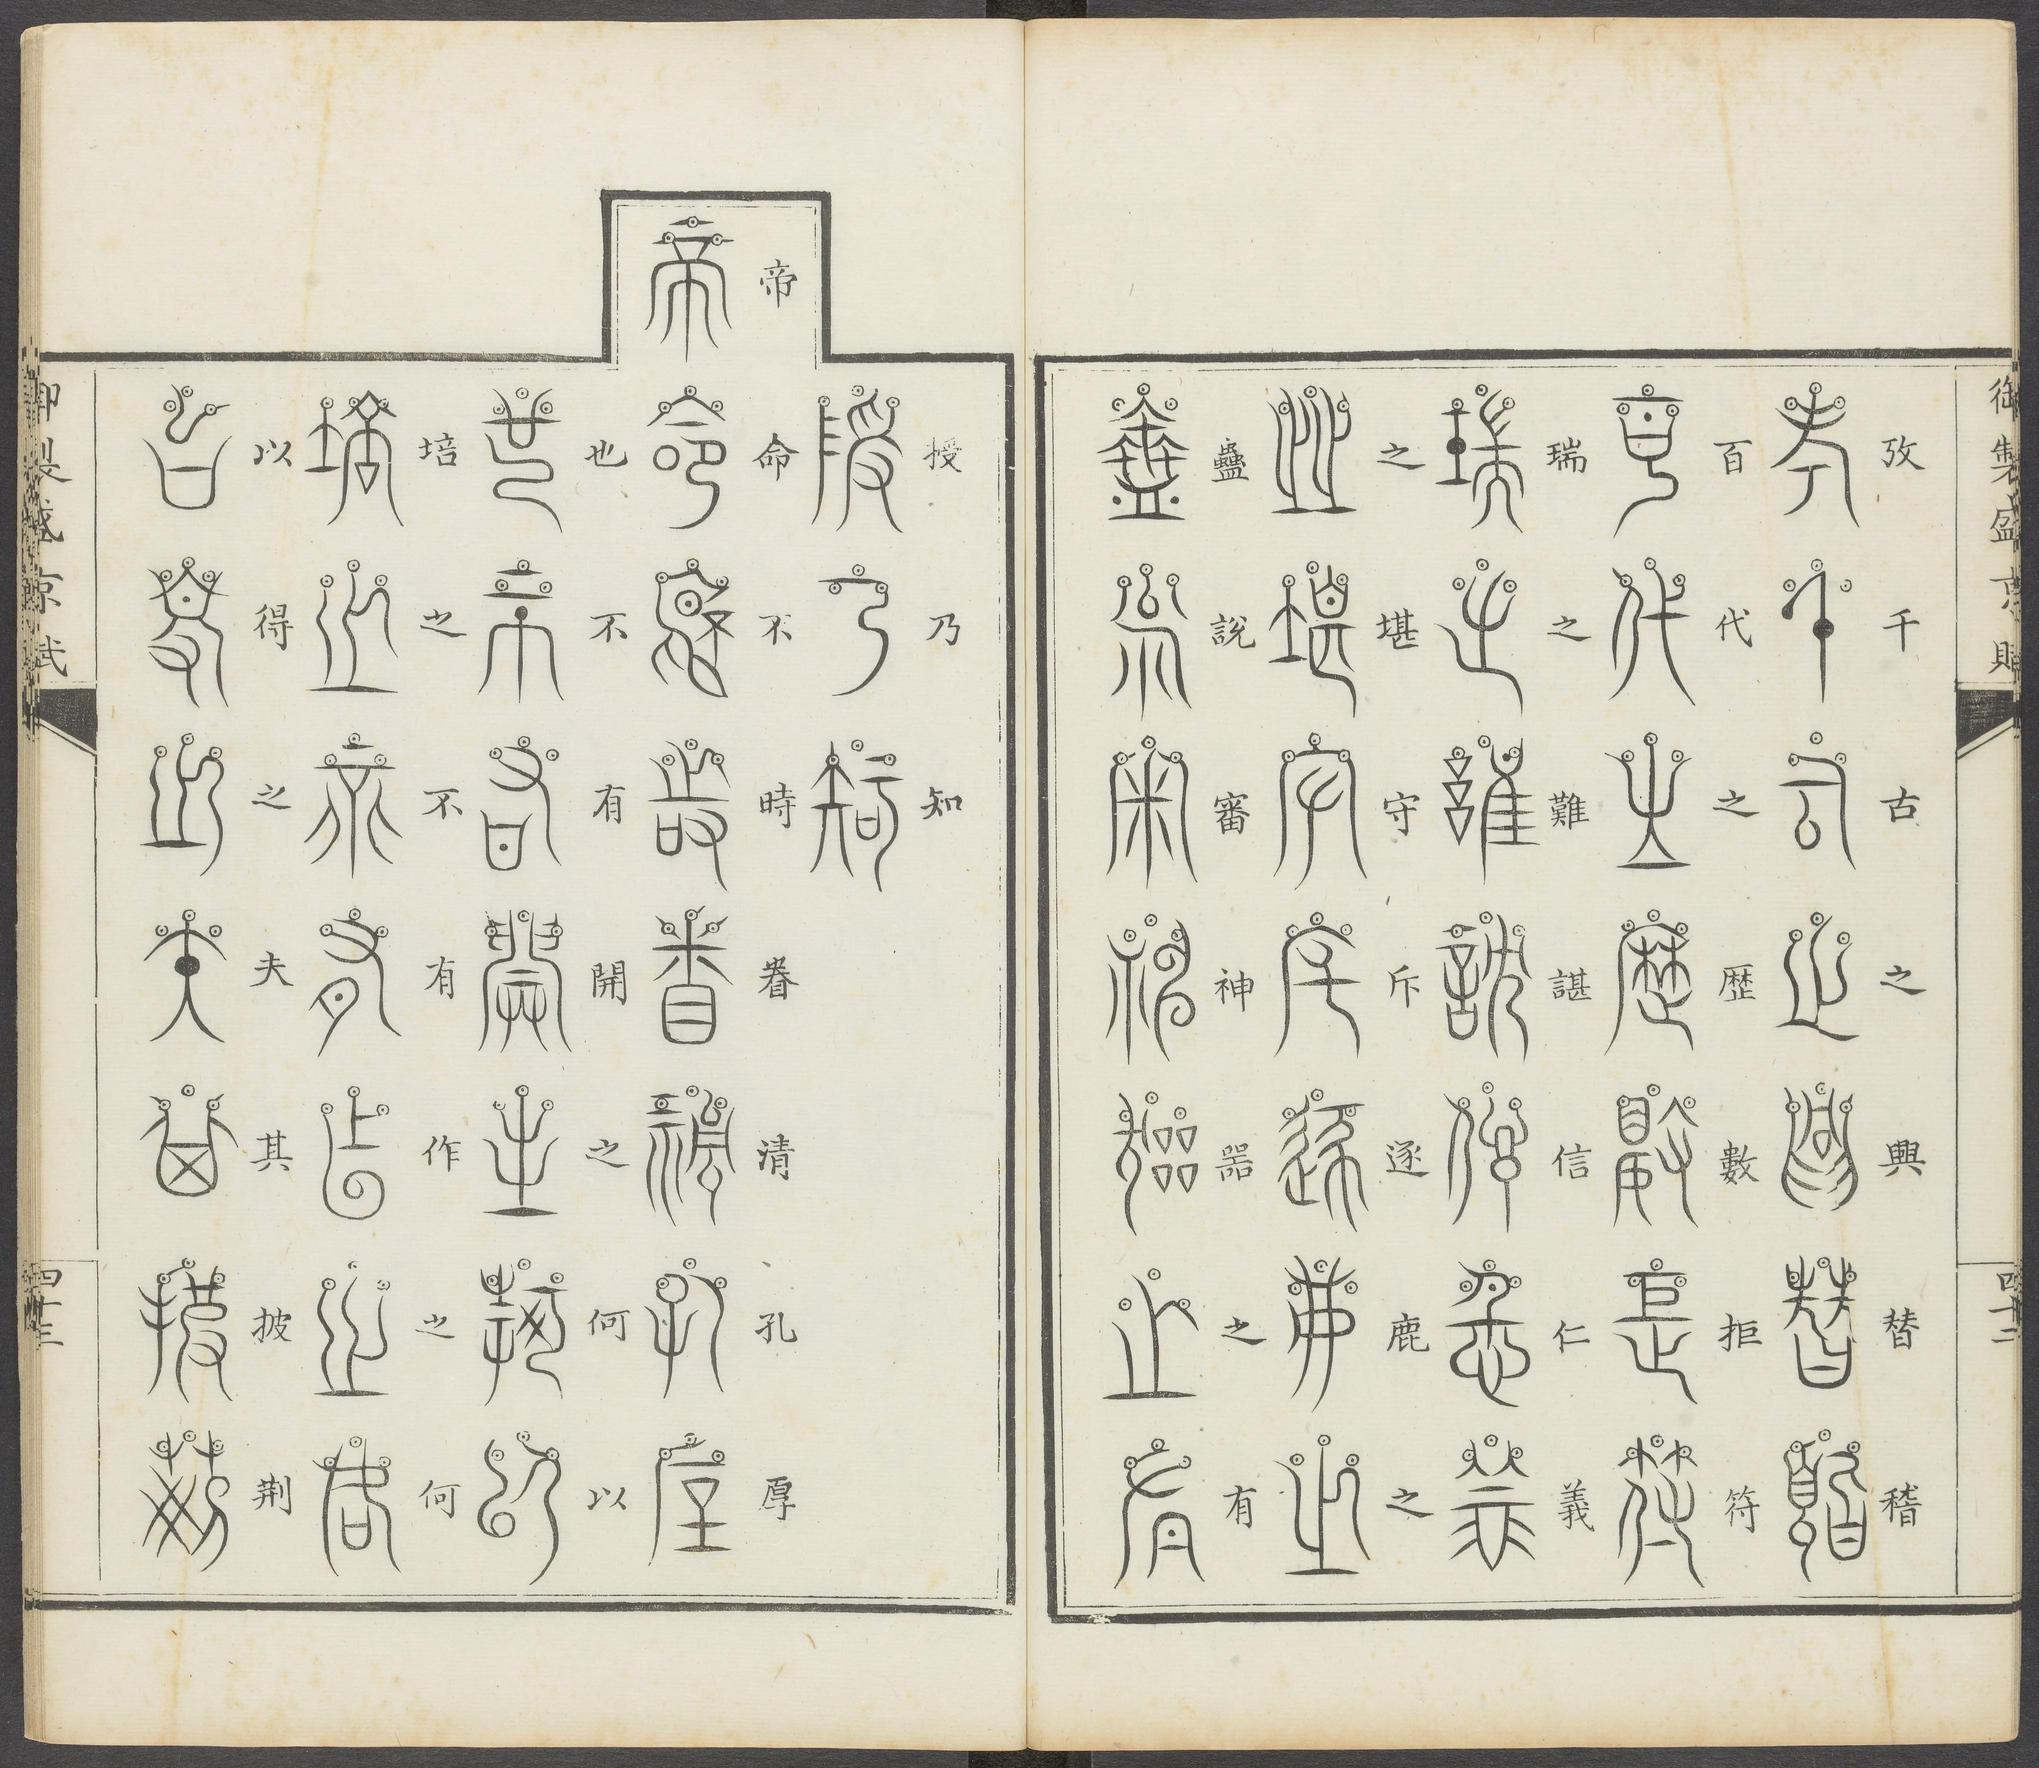 御製盛京賦
四十二
攷千古之興替稽
百代之歴數拒符
瑞之難諶信仁義
之堪守斥逐鹿之
蠱說審神器之有
授乃知
帝命不時眷清孔厚
也不有開之何以
培之不有作之何
以得之夫其披荆
御製盛京賦
四十三